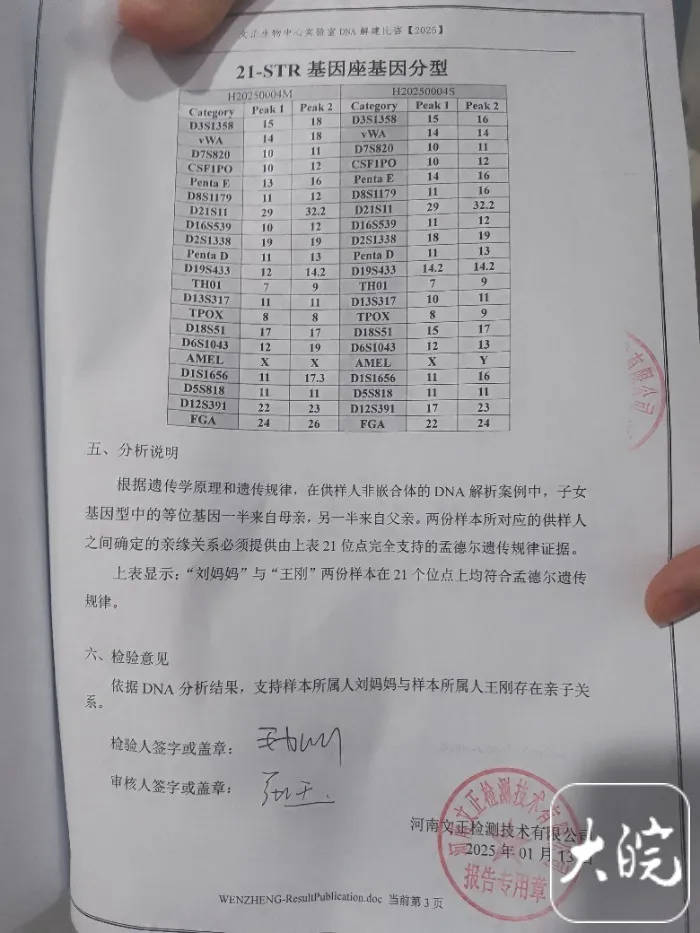 文正生物中心实验室 DNA 解建比鉴【2025】
21-STR 基因座基因分型
H20250004M H20250004S
Category Peak 1 Peak 2 Category Peak 1 Peak 2
D3S1358 15 18 D3S1358 15 16
vWA 14 18 vWA 14 14
D7S820 10 11 D7S820 10 11
CSF1PO 10 12 CSF1PO 10 12
Penta E 13 16 Penta E 14 16
D8S1179 11 12 D8S1179 11 16
D21S11 29 32.2 D21S11 29 32.2
D16S539 10 12 D16S539 11 12
D2S1338 19 19 D2S1338 18 19
Penta D 11 13 Penta D 11 13
D19S433 12 14.2 D19S433 14.2 14.2
TH01 7 9 TH01 7 9
D13S317 11 11 D13S317 10 11
TPOX 8 8 TPOX 8 9
D18S51 17 17 D18S51 15 17
D6S1043 12 19 D6S1043 12 13
AMEL X X AMEL X Y
D1S1656 11 17.3 D1S1656 11 16
D5S818 11 11 D5S818 11 11
D12S391 22 23 D12S391 17 23
FGA 24 26 FGA 22 24
五、分析说明
根据遗传学原理和遗传规律，在供样人非嵌合体的 DNA 解析案例中，子女
基因型中的等位基因一半来自母亲，另一半来自父亲。两份样本所对应的供样人
之间确定的亲缘关系必须提供由上表 21 位点完全支持的孟德尔遗传规律证据。
上表显示：“刘妈妈”与“王刚”两份样本在 21 个位点上均符合孟德尔遗传
规律。
六、检验意见
依据 DNA 分析结果，支持样本所属人刘妈妈与样本所属人王刚存在亲子关
系。
检验人签字或盖章：
审核人签字或盖章：
河南文正检测技术有限公司
2025 年 01 月 13 日
河南文正检测技术有限公司
报告专用章
有限公司
大皖
WENZHENG-ResultPublication.doc 当前第 3 页